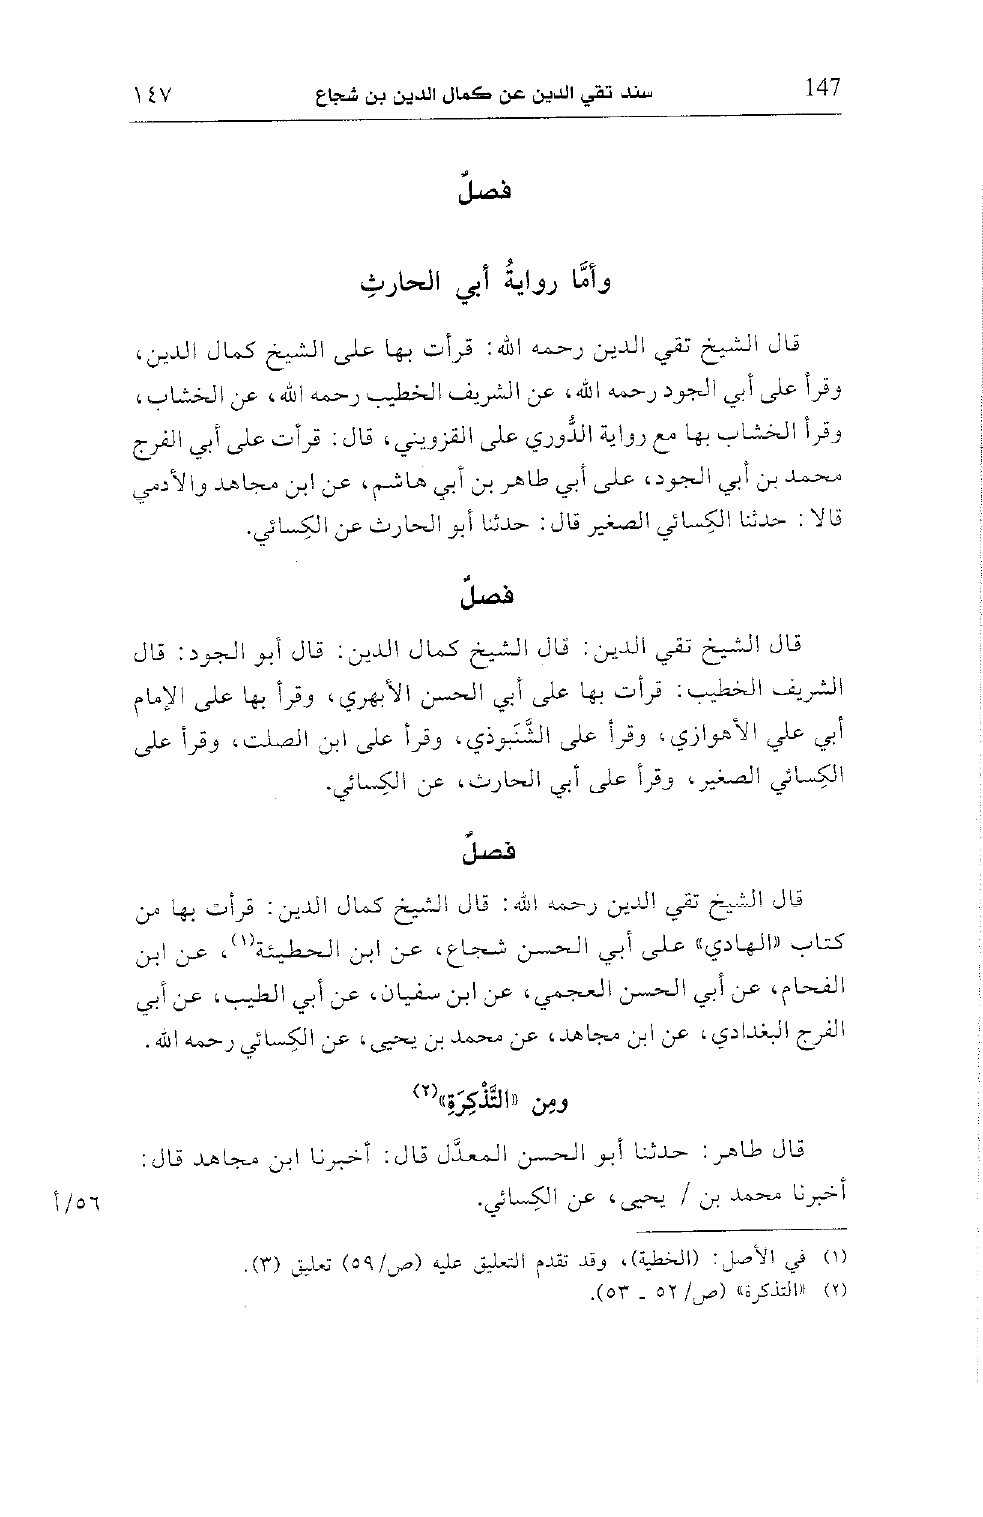 147 سند تقي الدين عن كمال الدين بن شجاع ١٤٧
فصلٌ
وأمَّا روايةُ أبي الحارثِ
قال الشيخ تقي الدين رحمه الله: قرأت بها على الشيخ كمال الدين،
وقرأ على أبي الجود رحمه الله، عن الشريف الخطيب رحمه الله، عن الخشاب،
وقرأ الخشاب بها مع رواية الدُّوري على القزويني، قال: قرأت على أبي الفرج
محمد بن أبي الجود، على أبي طاهر بن أبي هاشم، عن ابن مجاهد والأدمي
قالا: حدثنا الكِسائي الصغير قال: حدثنا أبو الحارث عن الكِسائي.
فصلٌ
قال الشيخ تقي الدين: قال الشيخ كمال الدين: قال أبو الجود: قال
الشريف الخطيب: قرأت بها على أبي الحسن الأبهري، وقرأ بها على الإمام
أبي علي الأهوازي، وقرأ على الشَّنَبوذي، وقرأ على ابن الصلت، وقرأ على
الكِسائي الصغير، وقرأ على أبي الحارث، عن الكِسائي.
فصلٌ
قال الشيخ تقي الدين رحمه الله: قال الشيخ كمال الدين: قرأت بها من
كتاب «الهادي» على أبي الحسن شجاع، عن ابن الحطيئة(١)، عن ابن
الفحام، عن أبي الحسن العجمي، عن ابن سفيان، عن أبي الطيب، عن أبي
الفرج البغدادي، عن ابن مجاهد، عن محمد بن يحيى، عن الكِسائي رحمه الله.
ومِن «التَّذْكِرَةِ»(٢)
قال طاهر: حدثنا أبو الحسن المعدَّل قال: أخبرنا ابن مجاهد قال:
أخبرنا محمد بن / يحيى، عن الكِسائي. ٥٦/أ
(١) في الأصل: (الخطية)، وقد تقدم التعليق عليه (ص/٥٩) تعليق (٣).
(٢) «التذكرة» (ص/٥٢ ـ ٥٣).